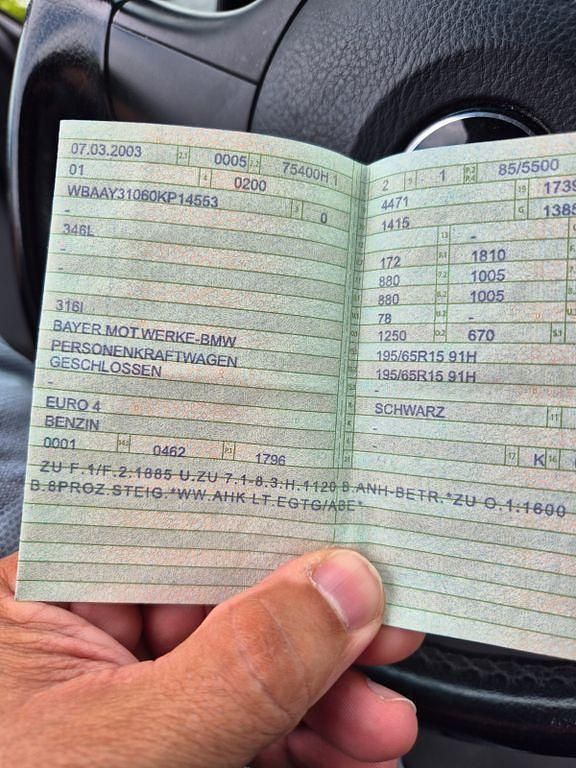 07.03.2003 2.1 0005 2.2 75400H 1
01 4 0200
WBAAY31060KP14553 3 0
-
346L
-
-
316I
BAYER.MOT.WERKE-BMW
PERSONENKRAFTWAGEN
GESCHLOSSEN
-
EURO 4
BENZIN
0001 14.1 0462 P.1 1796
2 9 1 P.2 P.4 85/5500
4471 19 1739
1415 G 1385
- 13 -
172 F.1 1810
880 7.2 1005
880 8.2 1005
78 U.2 -
1250 O.2 670 S.1
195/65R15 91H
195/65R15 91H
-
SCHWARZ 11
-
- 17 K 16
ZU F.1/F.2:1885 U.ZU 7.1-8.3:H.1120 B.ANH-BETR.*ZU O.1:1600
B.8PROZ.STEIG.*WW.AHK LT.EGTG/ABE*